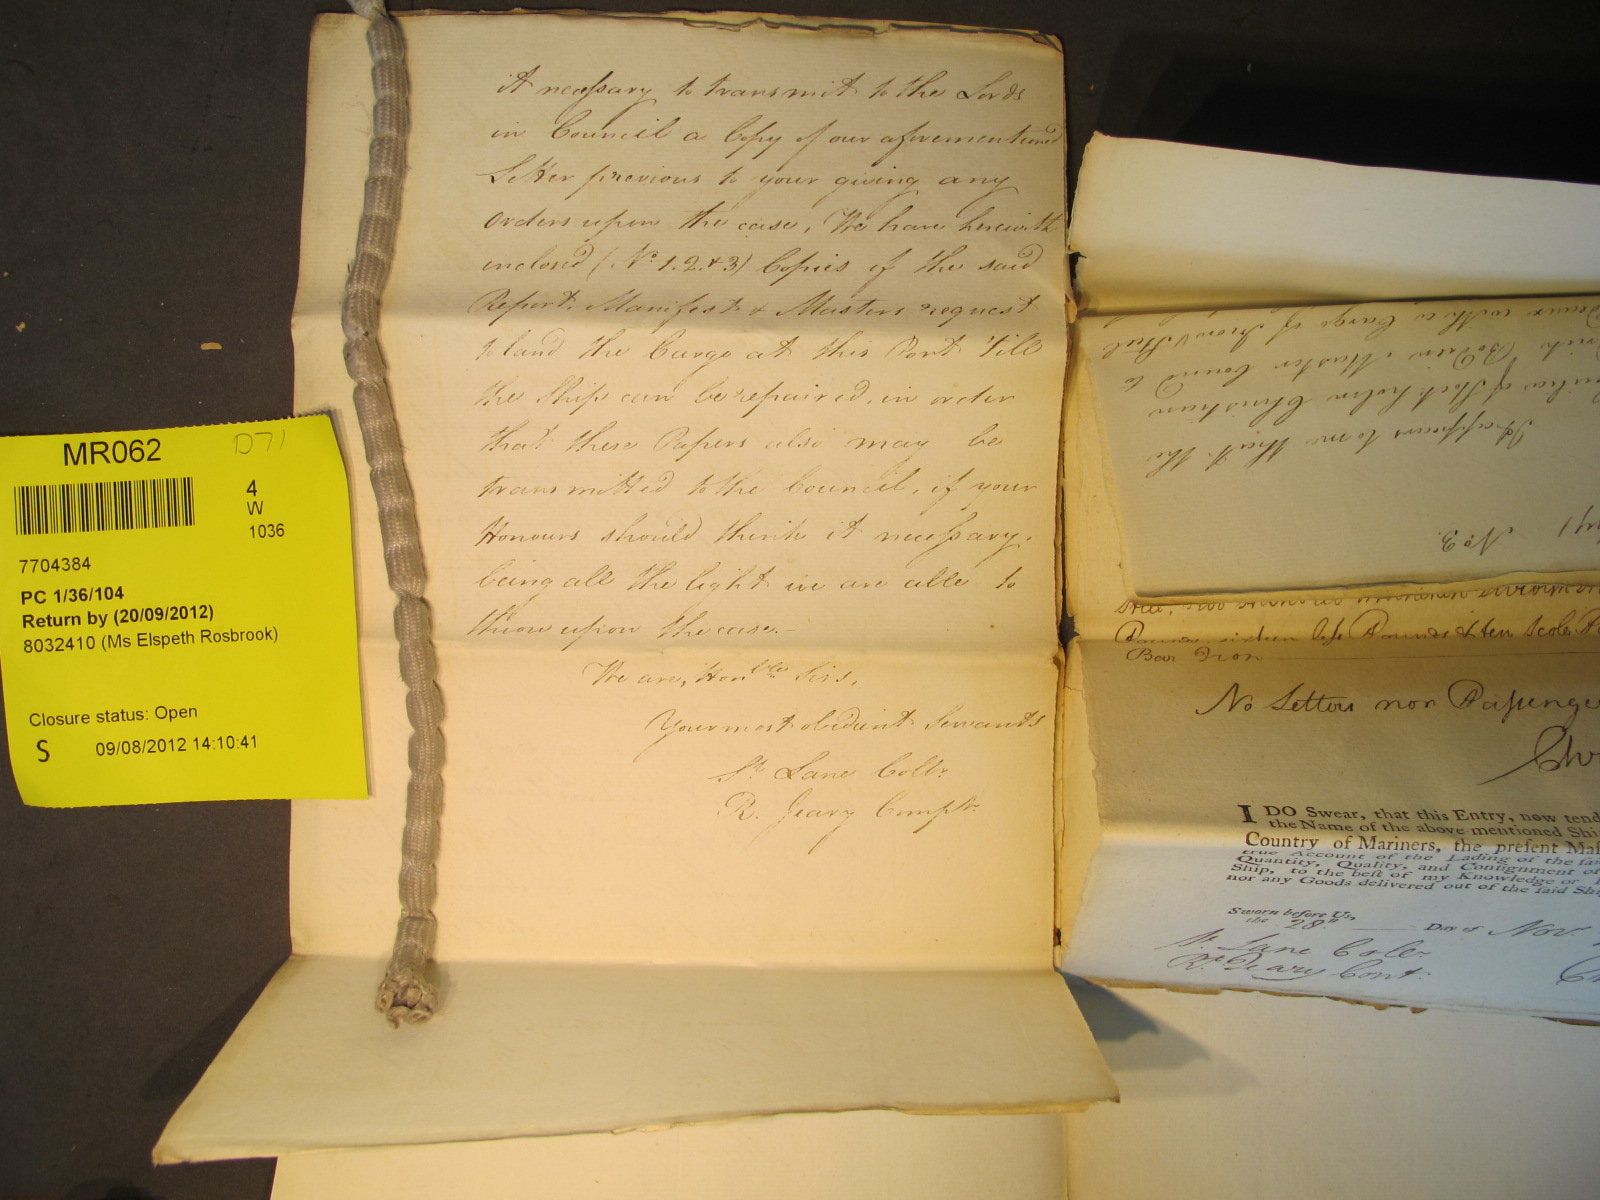 it necessary to transmit to the Lords
in Council a Copy of our aforementioned
Letter previous to your giving any
Orders upon the case, We have herewith
inclosed (No. 1. 2. & 3) Copies of the said
Report. Manifest & Masters request
to land the Cargo at this Port 'till
the Ship can be repaired, in order
that these Papers also may be
transmitted to the Council, if your
Honours should think it necessary.
being all the light we are able to
throw upon the case.—
We are, Honble Sirs,
Your most obedient Servants
Lane Collr.
R. Geary Comptr.
MR062
D71
4
W
1036
7704384
PC 1/36/104
Return by (20/09/2012)
8032410 (Ms Elspeth Rosbrook)
Closure status: Open
S 09/08/2012 14:10:41
No. 3.
It appears to me that the
of Stockholm Christian
Bodien Master bound to
with a Cargo of Iron & Steel
Pounds & ten Scole
Bar Iron
No Letters nor Passenge
I DO Swear, that this Entry, now tend
the Name of the above-mentioned Shi
Country of Mariners, the present Mas
true Account of the Lading of the sai
Quantity, Quality, and Consignment of
Ship, to the best of my Knowledge or
nor any Goods delivered out of the said Shi
Sworn before Us,
the 28th Day of Nov.
Lane Collr.
Rd. Geary Cont.